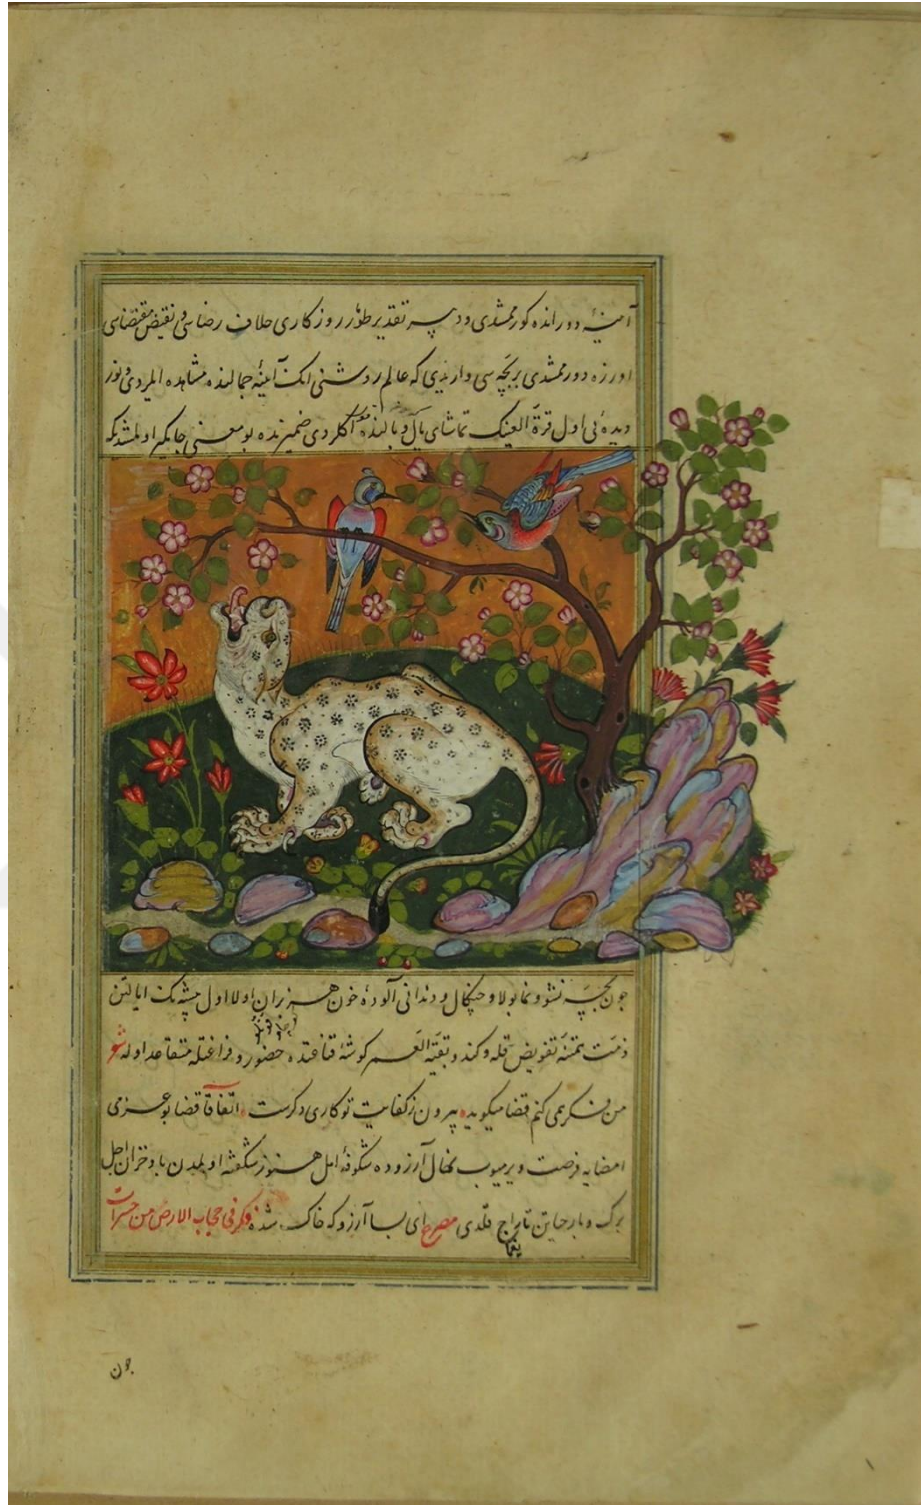 آینهٔ دورانده کورممشدی ودبیر تقدیر طومار روزکاری خلاف رضاسی ونقیض مقتضاسی
اوزره دورممشدی بربچه سی وار ایدی که عالم روشنی انک آینهٔ جمالنده مشاهده ایلردی ونور
دیده ئی اول قرة العینک تماشای یال وبالنده اکلردی ضمیرنده بومعنی جایکیر اولمشدیکه
چون بچه نشو ونما بولا وچنکال ودندانی آلودهٔ خون هزبران اولا اول بیشه نک ایالتن
ذمت همتنه تفویض قله وکندو بقیة العمر کوشهٔ قناعتده حضور وفراغتله متقاعد اوله شعر
من فکر همی کنم قضا میکوید بیرون زکفایت تو کاری دکرست اتفاقا قضا بوعزمی
امضایه فرصت ویرمیوب نهال آرزوده شکوفهٔ امل هنوز شکفته اولمدن باد خزان اجل
برک وبار حیاتن تاراج قلدی مصرع ای بسا آرزو که خاک شده فکر فی حجاب الارض من حسرات
یغما
چون